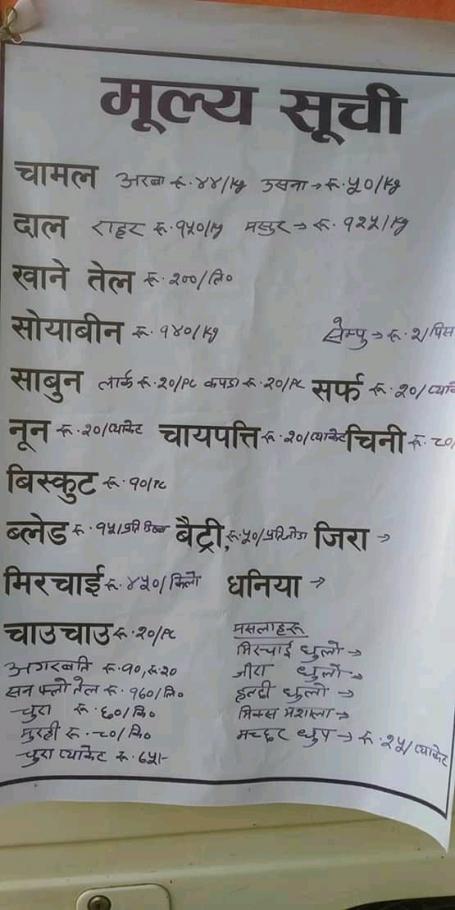 मूल्य सूची
चामल अरबा रू.४४/kg उसना → रू.५०/kg
दाल राहर रू.१५०/kg मसुर → रू.१२५/kg
खाने तेल रू.२००/लि०
सोयाबीन रू.१४०/kg सेम्पु → रू.२/पिस
साबुन लार्क रू.२०/pc कपडा रू.२०/pc सर्फ रू.२०/प्याके
नून रू.२०/प्याकेट चायपत्ति रू.२०/प्याकेट चिनी रू.८०/
बिस्कुट रू.१०/pc
ब्लेड रू.१५/प्रति डिब्बा बैट्री, रू.५०/प्रति जोडा जिरा →
मिरचाई रू.४५०/किलो धनिया →
चाउचाउ रू.२०/pc
अगरबत्ति रू.१०, रू.२०
सन फ्लो तेल रू.१६०/लि०
चुरा रू.६०/लि०
मुरही रू.८०/लि०
चुरा प्याकेट रू.६५/-
मसलाहरू
मिरचाई धुलो →
जीरा धुलो →
हल्दी धुलो →
मिक्स मशाला →
मच्छर धुप → रू.२५/प्याकेट